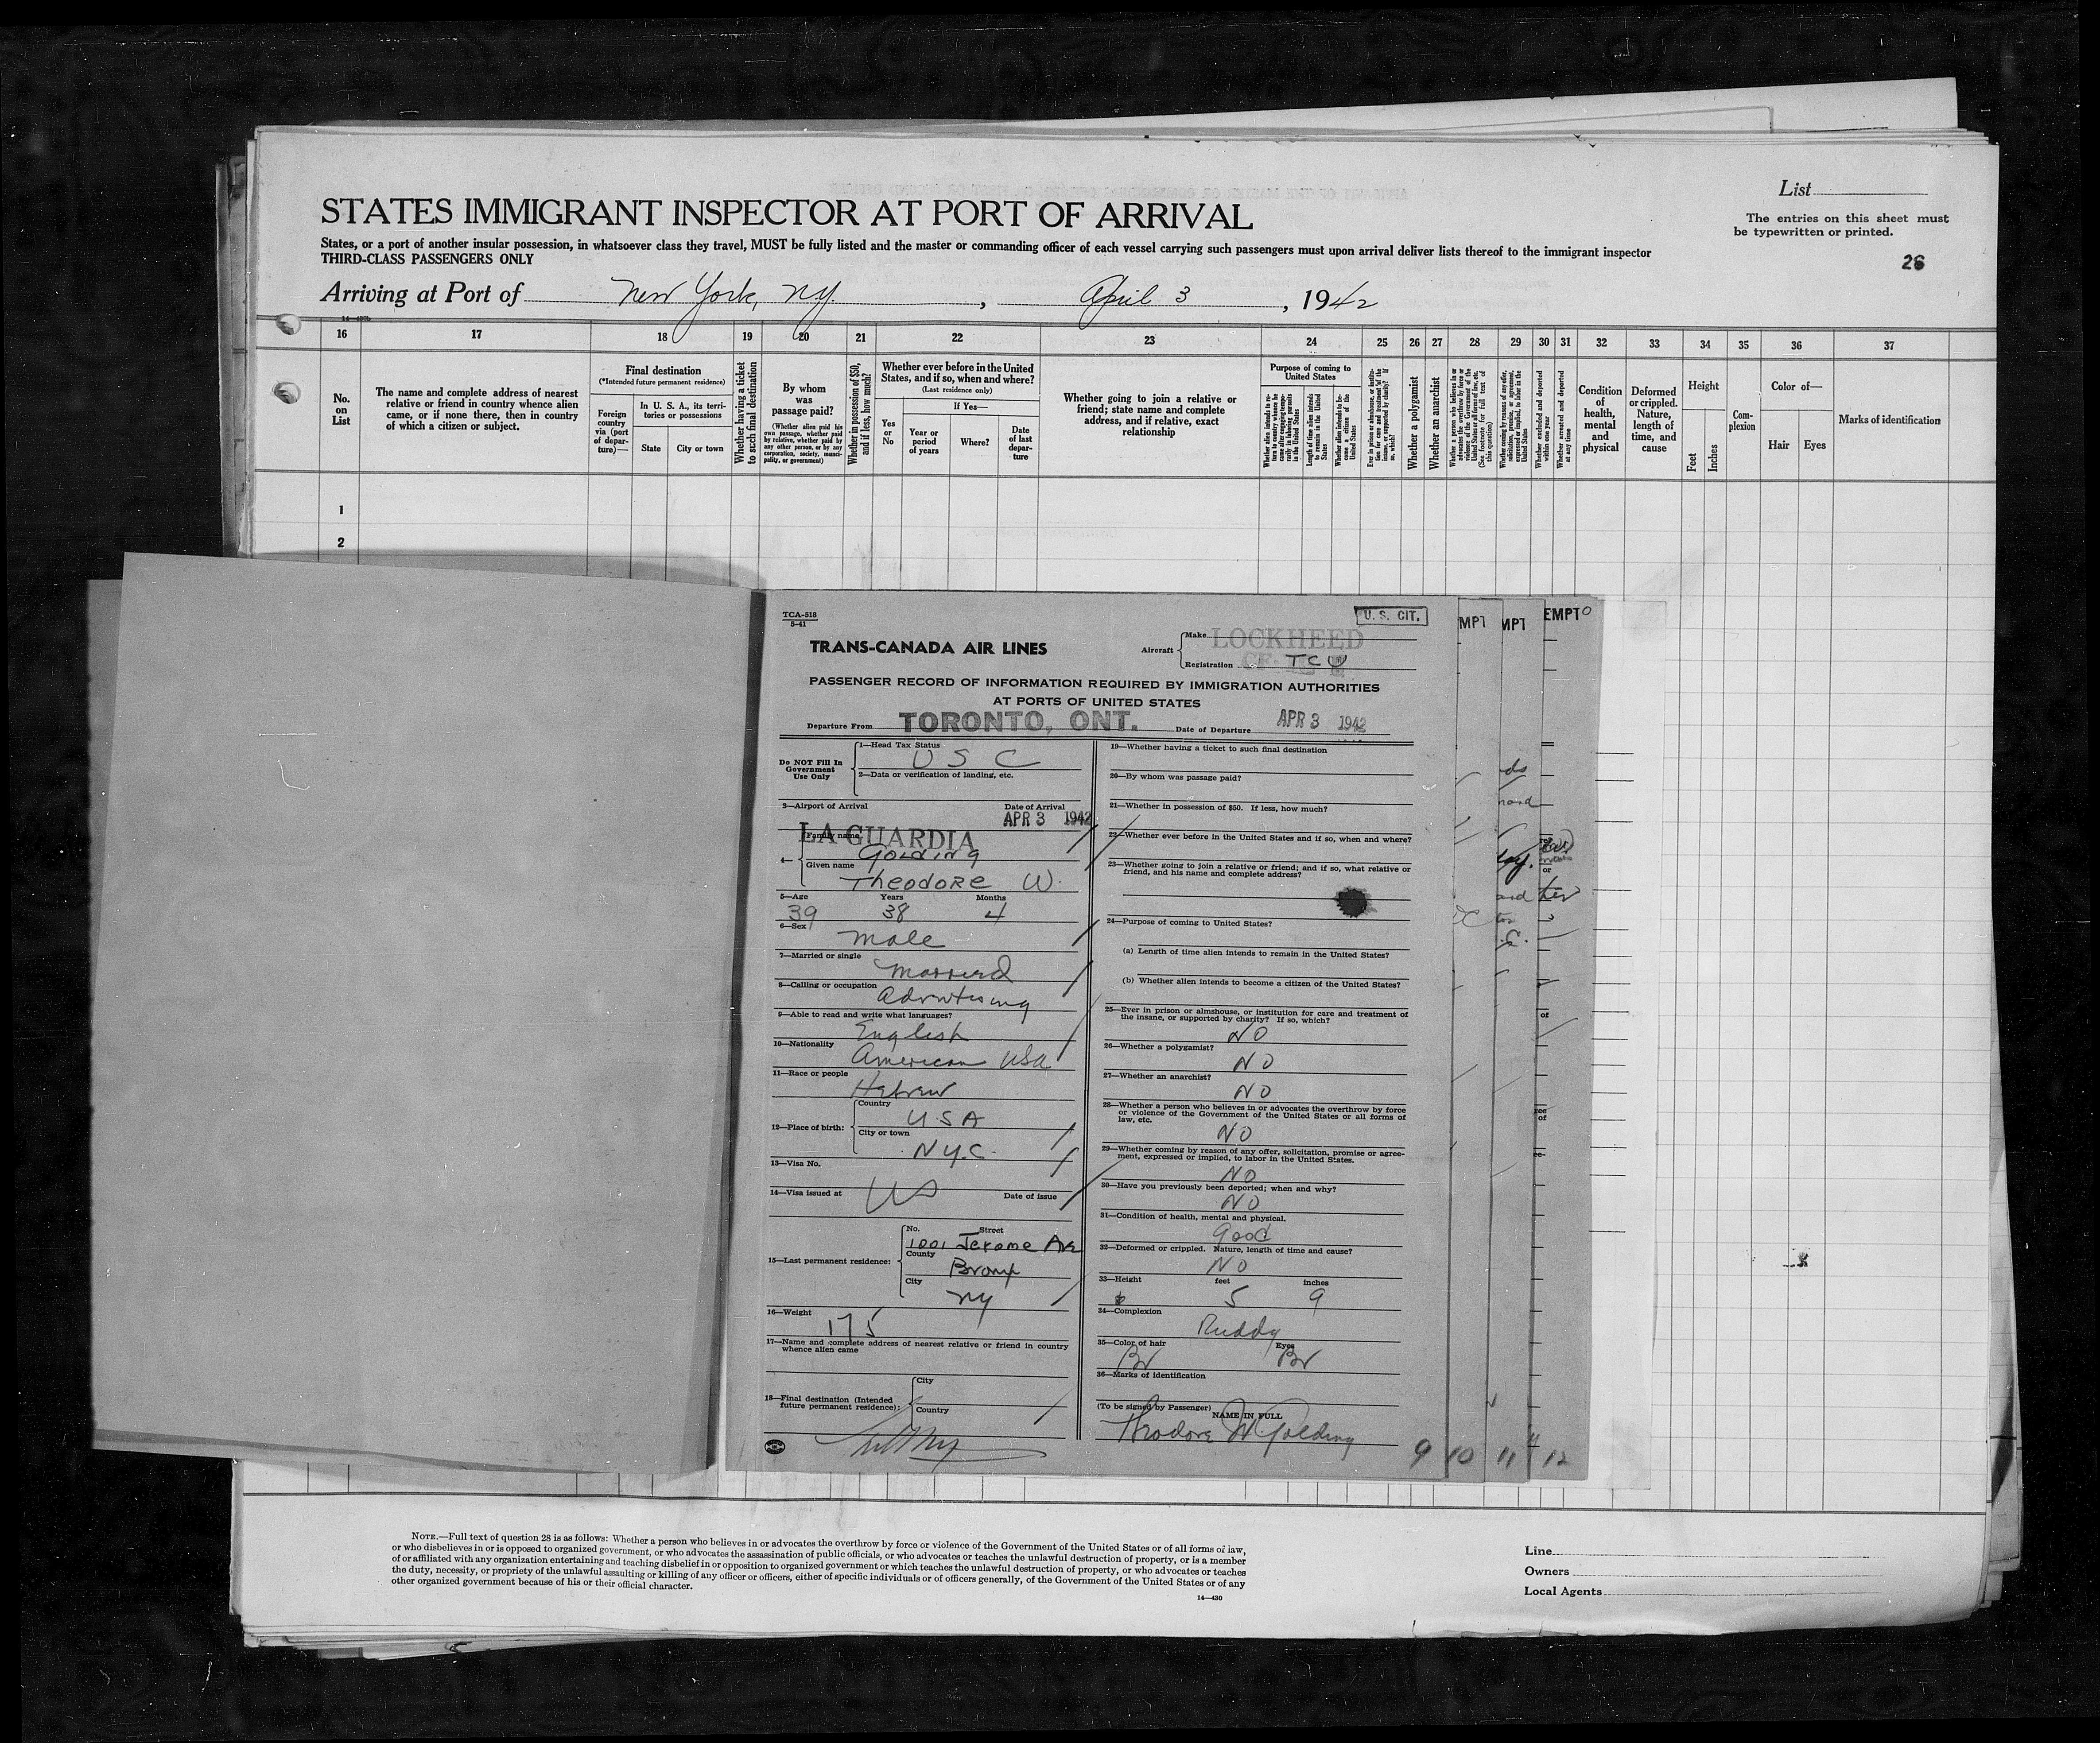 List
STATES IMMIGRANT INSPECTOR AT PORT OF ARRIVAL
The entries on this sheet must
be typewritten or printed.
States, or a port of another insular possession, in whatsoever class they travel, MUST be fully listed and the master or commanding officer of each vessel carrying such passengers must upon arrival deliver lists thereof to the immigrant inspector
THIRD-CLASS PASSENGERS ONLY
26
Arriving at Port of New York, NY. , April 3 , 1942
16 17 18 19 20 21 22 23 24 25 26 27 28 29 30 31 32 33 34 35 36 37
No.
on
List
The name and complete address of nearest
relative or friend in country whence alien
came, or if none there, then in country
of which a citizen or subject.
Final destination
(*Intended future permanent residence)
Foreign
country
via (port
of depar-
ture)—
In U. S. A., its terri-
tories or possessions
State
City or town
Whether having a ticket
to such final destination
By whom
was
passage paid?
(Whether alien paid his
own passage, whether paid
by relative, whether paid by
any other person, or by any
corporation, society, munici-
pality, or government)
Whether in possession of $50,
and if less, how much?
Whether ever before in the United
States, and if so, when and where?
(Last residence only)
Yes
or
No
If Yes—
Year or
period
of years
Where?
Date
of last
depar-
ture
Whether going to join a relative or
friend; state name and complete
address, and if relative, exact
relationship
Purpose of coming to
United States
Whether a polygamist
Whether an anarchist
Condition
of
health,
mental
and
physical
Deformed
or crippled.
Nature,
length of
time, and
cause
Height
Feet
Inches
Com-
plexion
Color of—
Hair
Eyes
Marks of identification
1
2
TCA-518
5-41
U. S. CIT.
MPT
MPT
EMPT
TRANS-CANADA AIR LINES
Aircraft
Make LOCKHEED
Registration CF- TCU
PASSENGER RECORD OF INFORMATION REQUIRED BY IMMIGRATION AUTHORITIES
AT PORTS OF UNITED STATES
Departure From TORONTO, ONT. Date of Departure APR 3 1942
Do NOT Fill In
Government
Use Only
1—Head Tax Status
U S C
2—Data or verification of landing, etc.
3—Airport of Arrival Date of Arrival
LA GUARDIA APR 3 1942
4— Family name
Golding
Given name
Theodore W.
5—Age Years Months
39 38 4
6—Sex
Male
7—Married or single
Married
8—Calling or occupation
Advertising
9—Able to read and write what languages?
English
10—Nationality
American USA
11—Race or people
Hebrew
12—Place of birth:
Country
USA
City or town
N.Y.C.
13—Visa No.
14—Visa issued at US Date of issue
15—Last permanent residence:
No. Street
1001 Jerome Ave
County
Bronx
City
NY
16—Weight
175
17—Name and complete address of nearest relative or friend in country
whence alien came
18—Final destination (Intended
future permanent residence):
City
Country
19—Whether having a ticket to such final destination
20—By whom was passage paid?
21—Whether in possession of $50. If less, how much?
22—Whether ever before in the United States and if so, when and where?
23—Whether going to join a relative or friend; and if so, what relative or
friend, and his name and complete address?
24—Purpose of coming to United States?
(a) Length of time alien intends to remain in the United States?
(b) Whether alien intends to become a citizen of the United States?
25—Ever in prison or almshouse, or institution for care and treatment of
the insane, or supported by charity? If so, which?
NO
26—Whether a polygamist?
NO
27—Whether an anarchist?
NO
28—Whether a person who believes in or advocates the overthrow by force
or violence of the Government of the United States or all forms of
law, etc.
NO
29—Whether coming by reason of any offer, solicitation, promise or agree-
ment, expressed or implied, to labor in the United States.
NO
30—Have you previously been deported; when and why?
NO
31—Condition of health, mental and physical.
Good
32—Deformed or crippled. Nature, length of time and cause?
NO
33—Height feet inches
5 9
34—Complexion
Ruddy
35—Color of hair Eyes
Br Br
36—Marks of identification
(To be signed by Passenger)
NAME IN FULL
Theodore W Golding
9 10 11 12
NOTE.—Full text of question 28 is as follows: Whether a person who believes in or advocates the overthrow by force or violence of the Government of the United States or of all forms of law,
or who disbelieves in or is opposed to organized government, or who advocates the assassination of public officials, or who advocates or teaches the unlawful destruction of property, or is a member
of or affiliated with any organization entertaining and teaching disbelief in or opposition to organized government or which teaches the unlawful destruction of property, or who advocates or teaches
the duty, necessity, or propriety of the unlawful assaulting or killing of any officer or officers, either of specific individuals or of officers generally, of the Government of the United States or of any
other organized government because of his or their official character.
14—430
Line
Owners
Local Agents